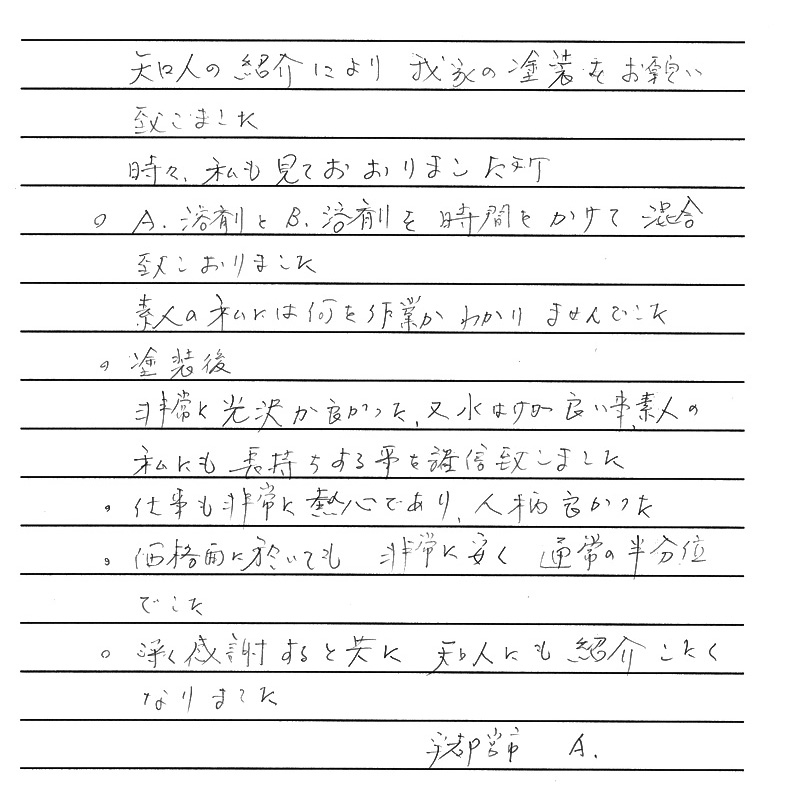 知人の紹介により 我家の塗装をお願い
致しました
時々、私も見ておおりました所
○ A.溶剤とB.溶剤を時間をかけて混合
致しおりました
素人の私には何を作業かわかりませんでした
○ 塗装後
非常に光沢が良かった、又水はけが良い事、素人の
私にも長持ちする事を確信致しました
○ 仕事も非常に熱心であり、人柄良かった
○ 価格面に於いても 非常に安く 通常の半分位
でした
○ 深く感謝すると共に 知人にも紹介したく
なりました
宇都宮市 A.